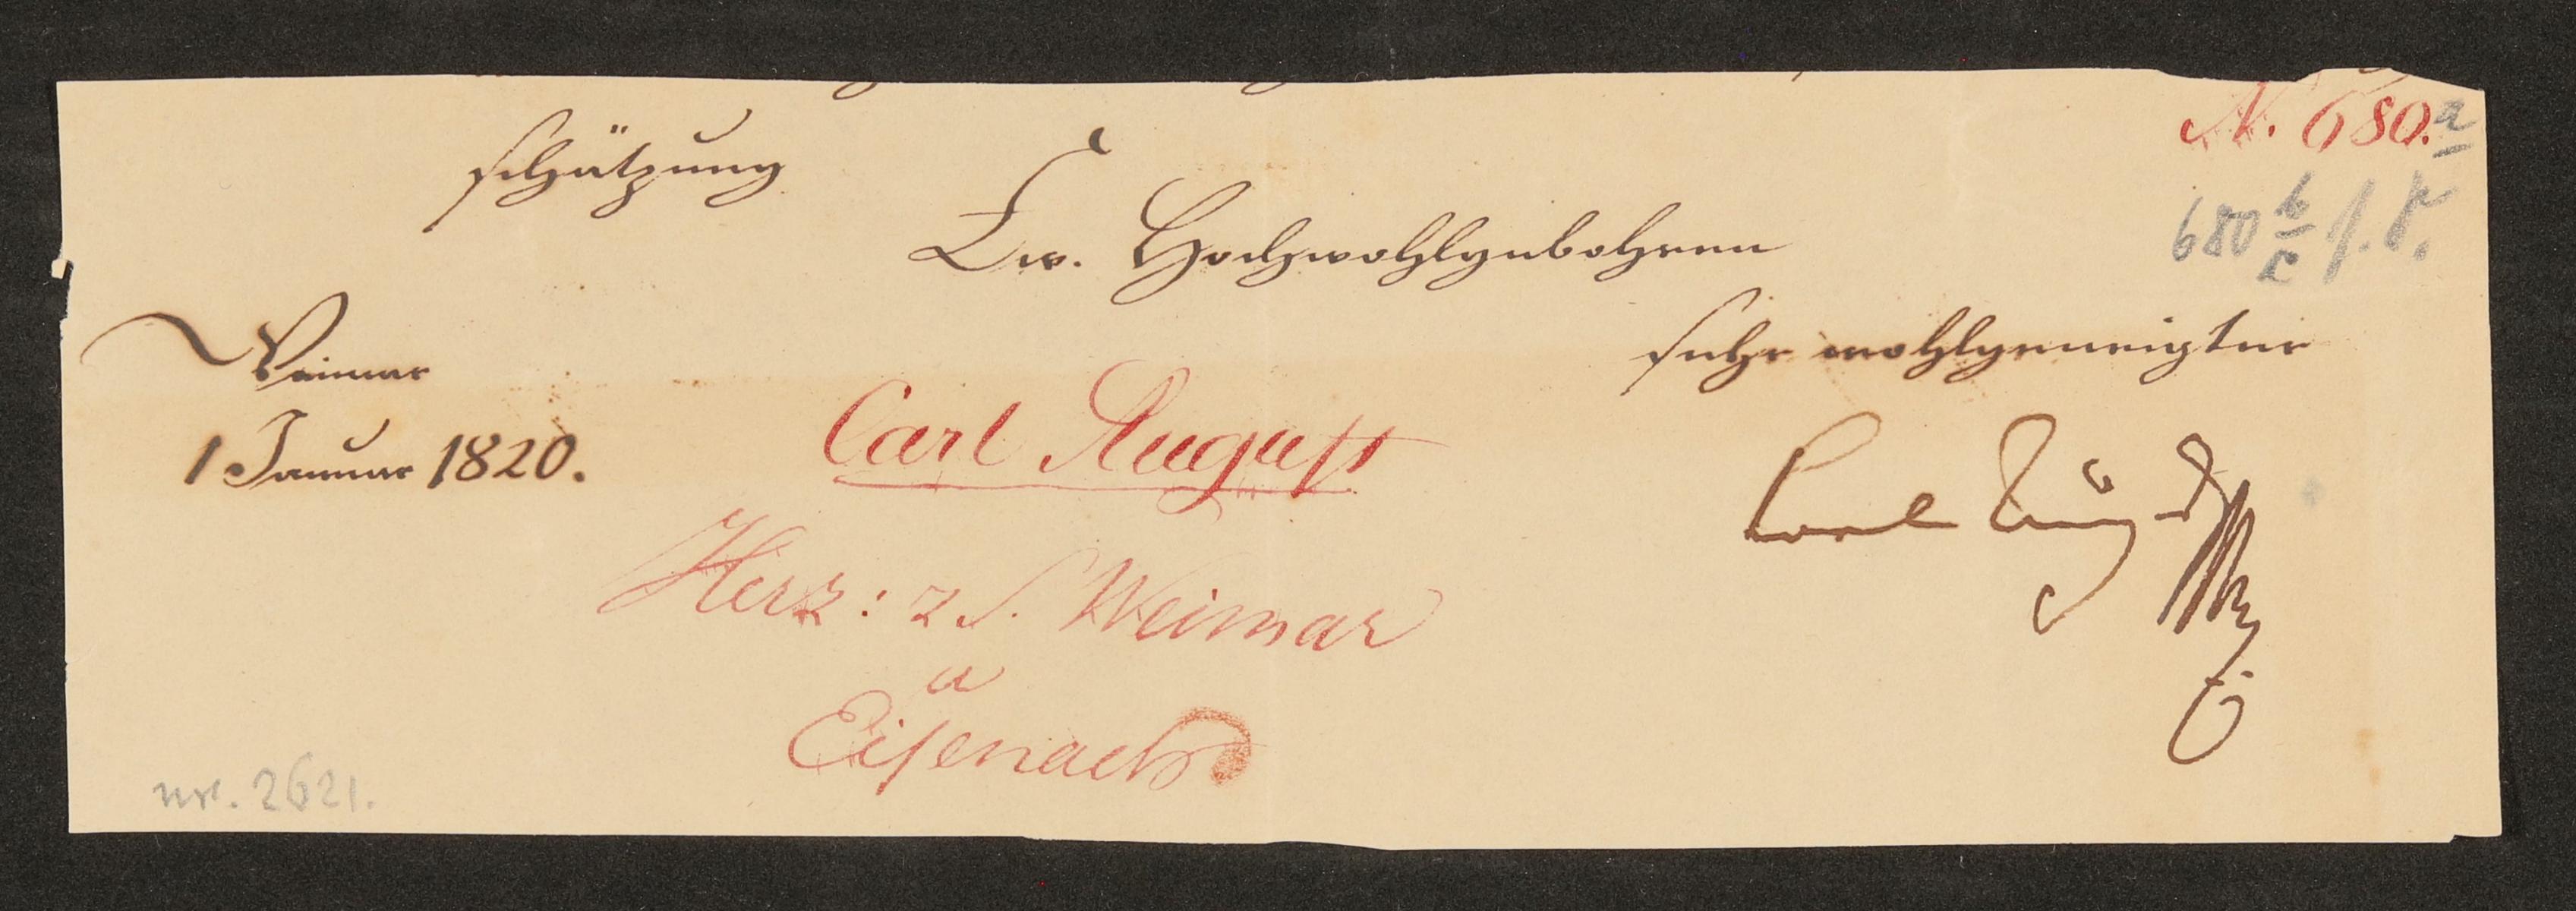 N. 680.a
schätzung
Ew. Hochwohlgebohrnen
680 b/c f. F.
sehr wohlgeneigter
Weimar
1 Januar 1820.
Carl August
Carl August
Herz: z S. Weimar
u
Eisenach
nr. 2621.